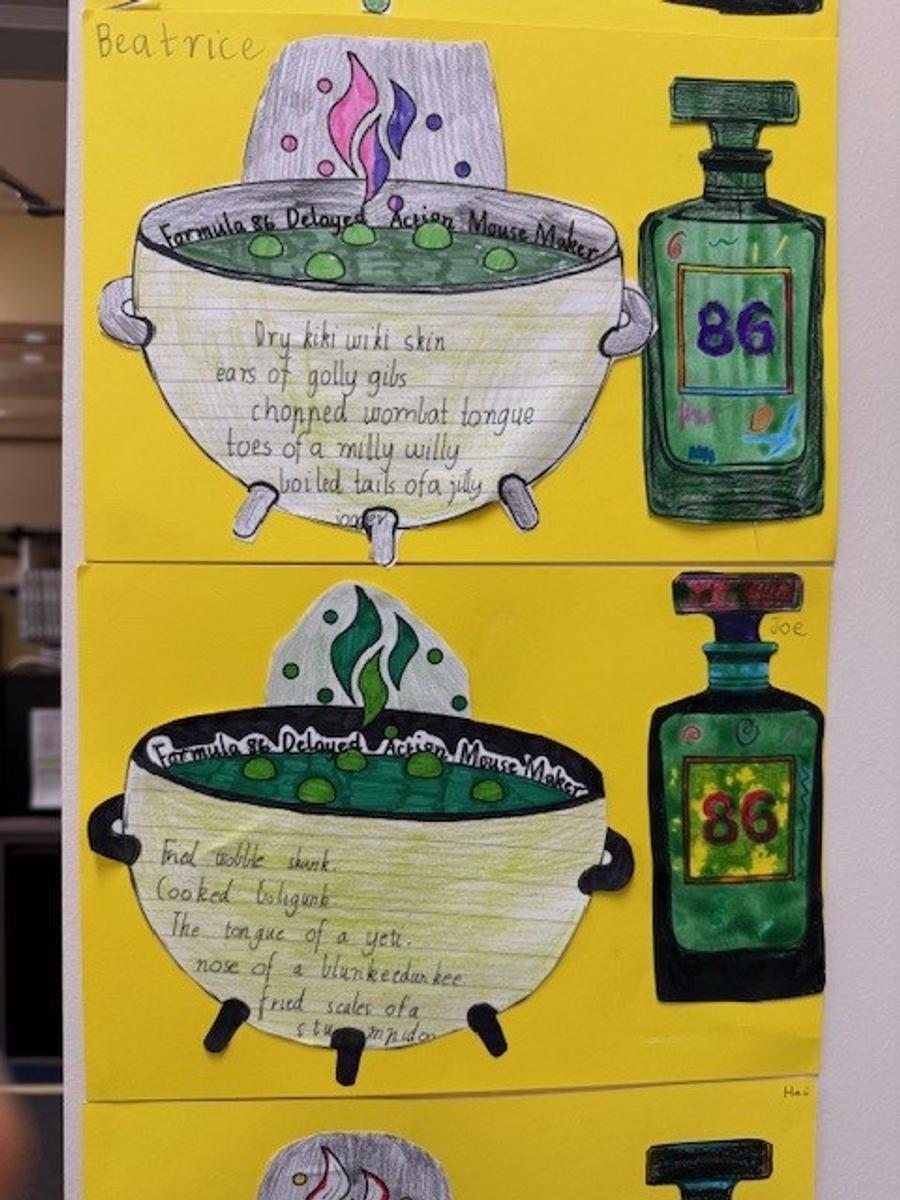 Beatrice
Formula 86 Delayed Action Mouse Maker
Dry kiki wiki skin
ears of golly gibs
chopped wombat tongue
toes of a milly willy
boiled tails of a jilly
86
Joe
Formula 86 Delayed Action Mouse Maker
Fried wobble skunk.
Cooked
The tongue of a yeti.
nose of a
fried scales of a
86